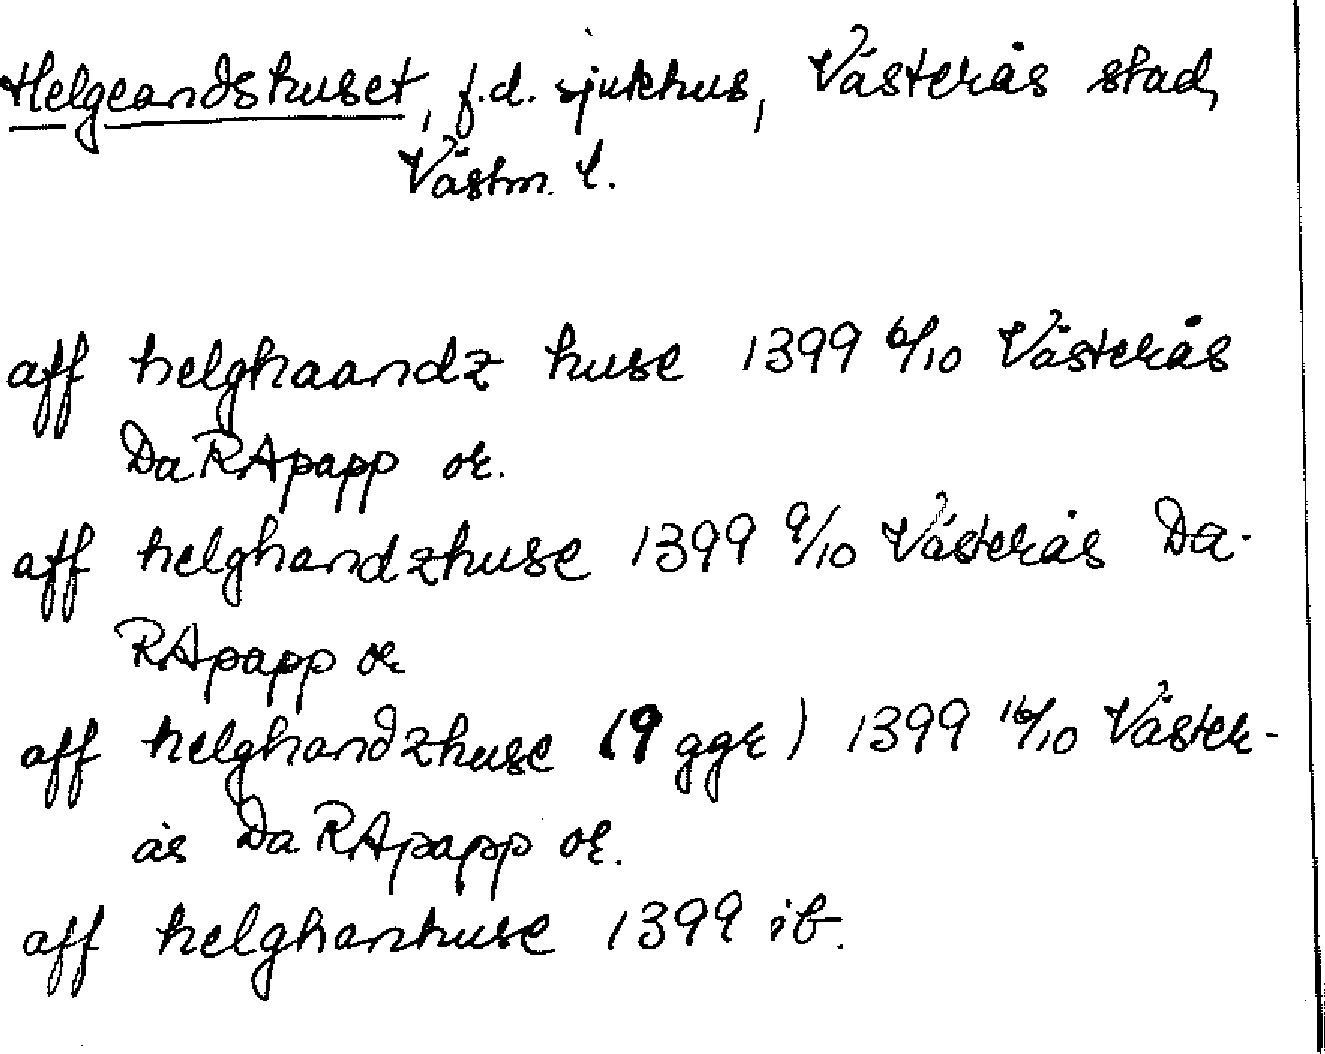 Helgeandshuset, f.d. sjukhus, Västerås stad,
Västm. l.
aff helghaandz huse 1399 6/10 Västerås
DaRApapp or.
aff helghandzhuse 1399 9/10 Västerås Da-
RApapp or
aff helghandzhuse (9 ggr) 1399 16/10 Väster-
ås DaRApapp or.
aff helghanhuse 1399 ib.